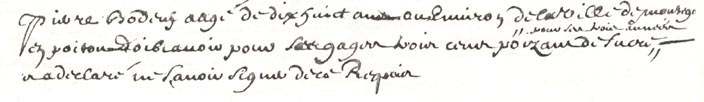 Pierre Bodeuf aagé de dix huict ans ou Environ de la Ville de
en poitou doibt avoir pour ses gages trois cens poizant de sucre
pour ses trois années
et a declaré ne scavoir signer de ce Requis